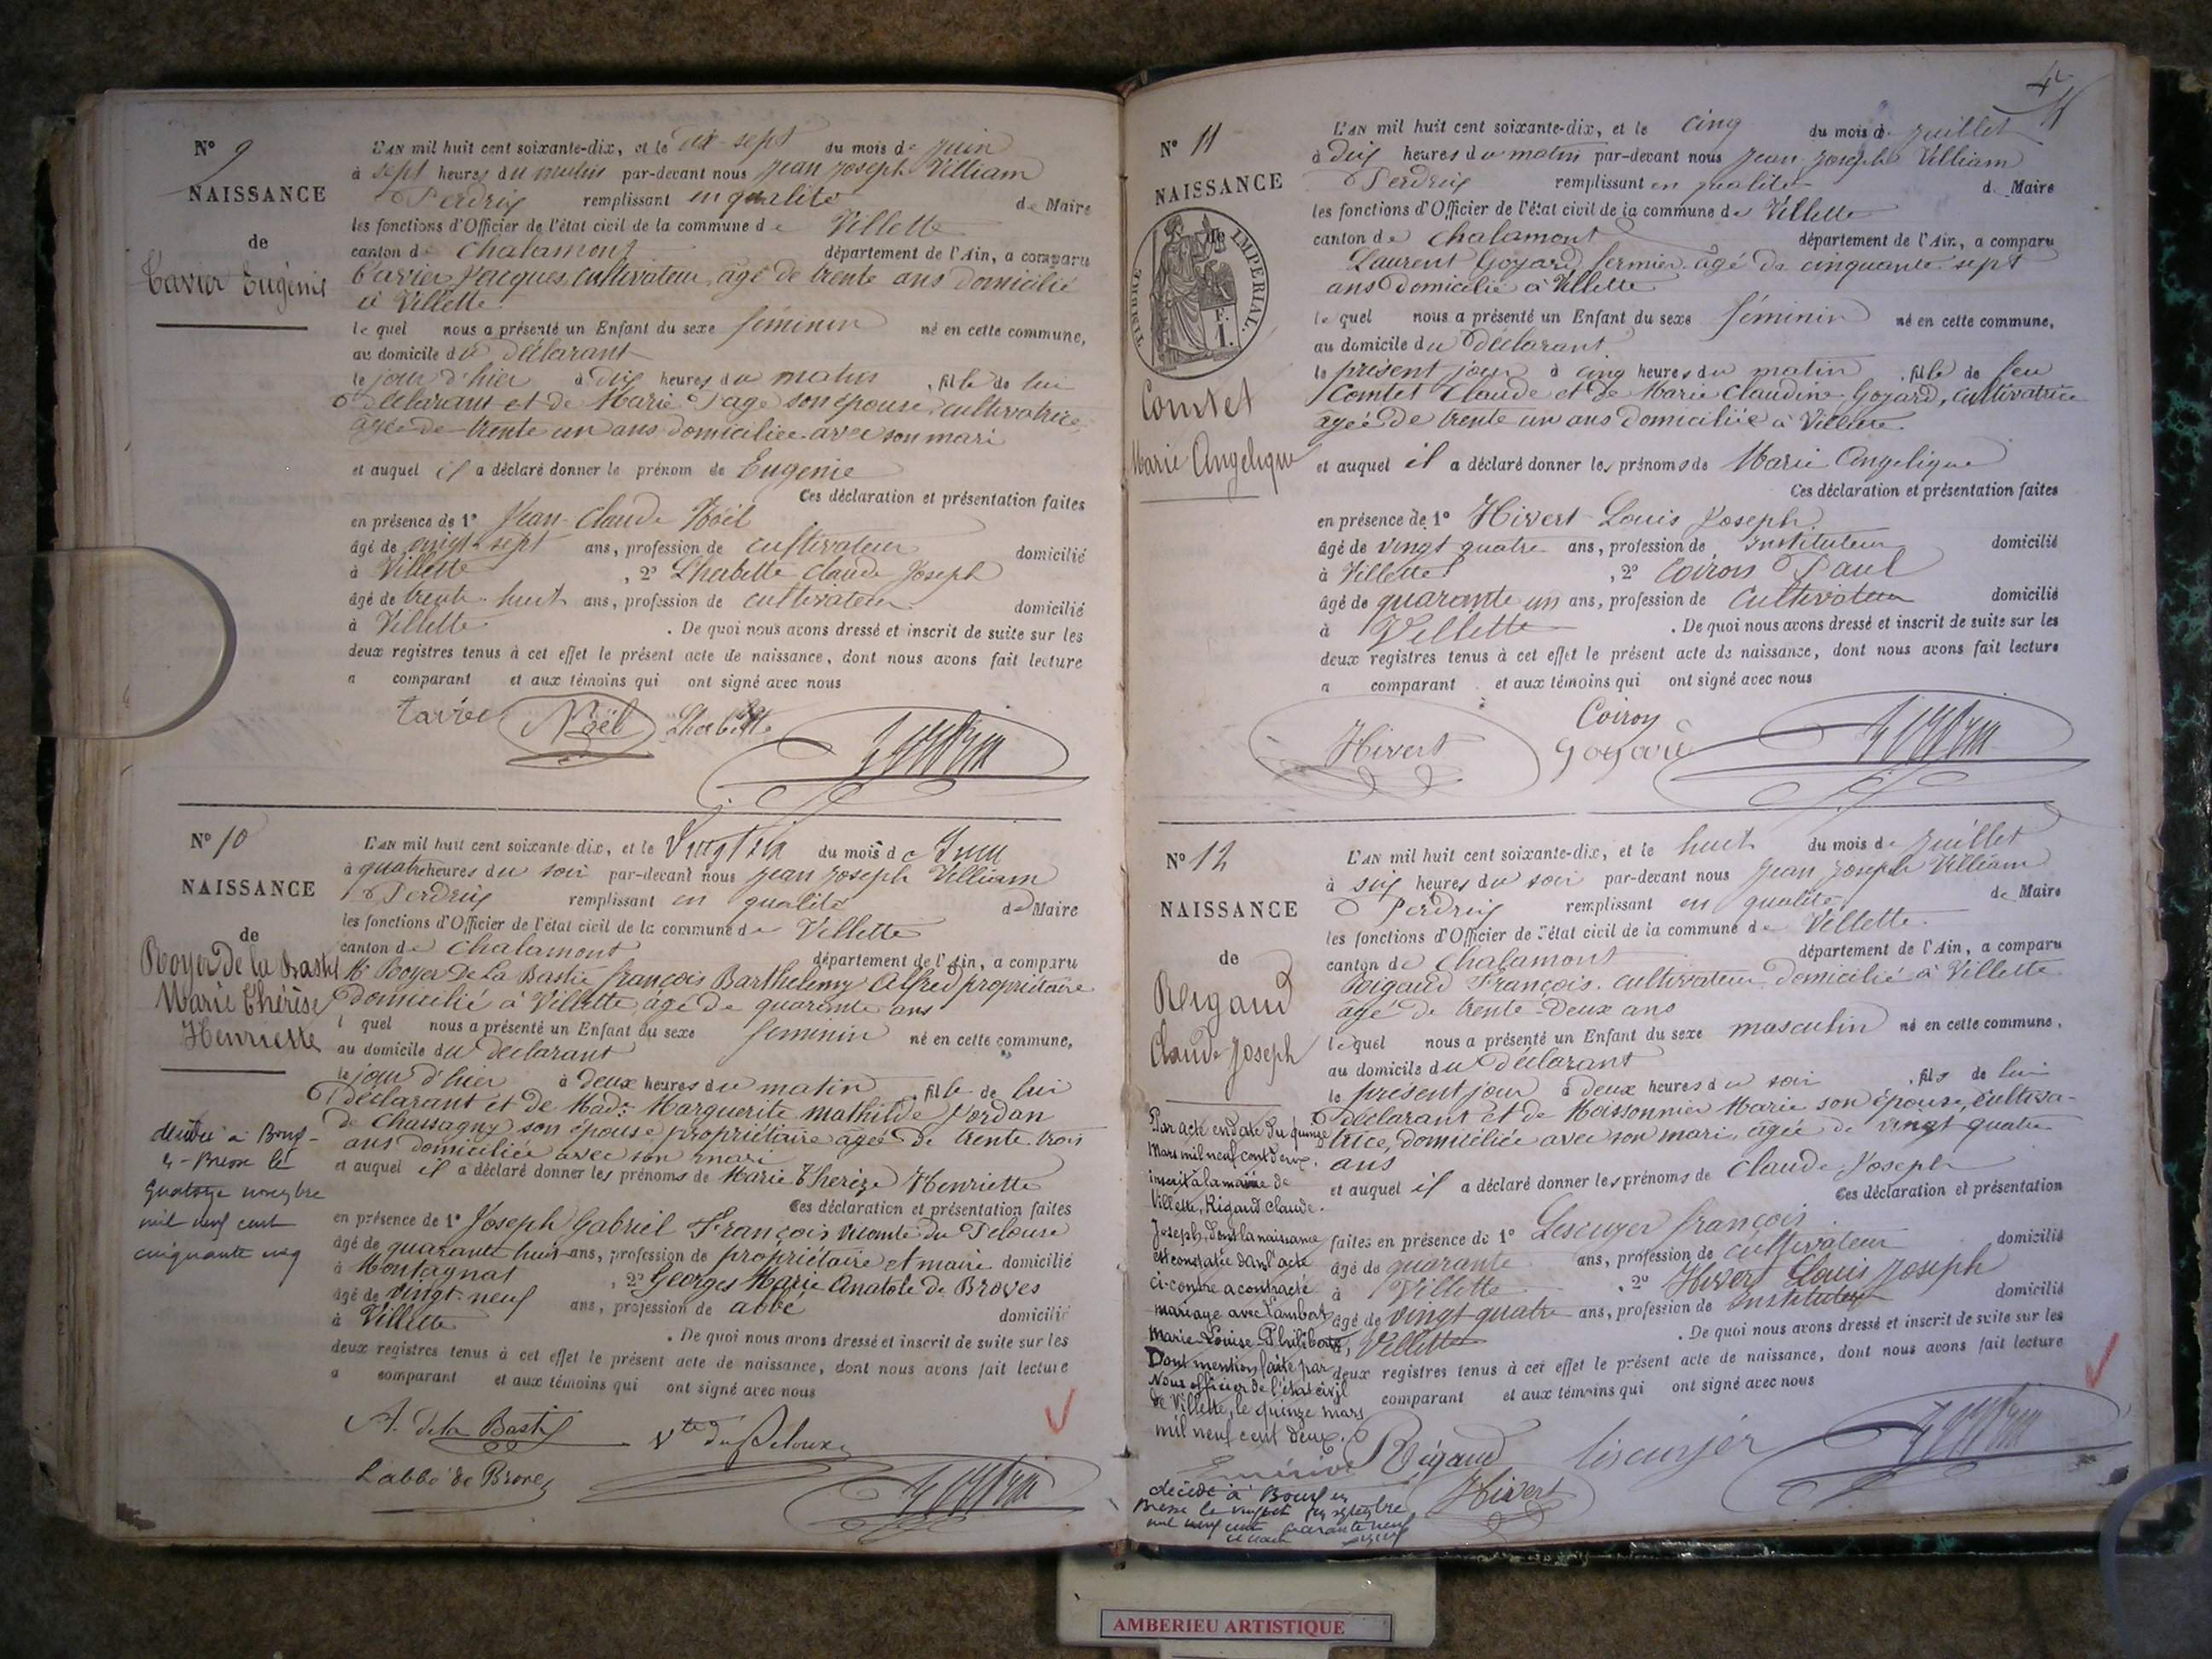 N° 9
NAISSANCE
de
Tavier Eugénie
L'AN mil huit cent soixante-dix, et le dix-sept du mois de juin
à sept heures du matin par-devant nous Jean Joseph Villiam
Perdrix remplissant en qualité de Maire
les fonctions d'Officier de l'état civil de la commune de Villette
canton de Chalamont département de l'Ain, a comparu
Tavier Jacques, cultivateur, âgé de trente ans domicilié
à Villette
lequel nous a présenté un Enfant du sexe féminin né en cette commune,
au domicile du déclarant
le jour d'hier à dix heures du matin, fille de lui
déclarant et de Marie Page son épouse, cultivatrice,
âgée de trente un ans domiciliée avec son mari
et auquel il a déclaré donner le prénom de Eugénie
Ces déclaration et présentation faites
en présence de 1° Jean-Claude Noël
âgé de vingt-sept ans, profession de cultivateur domicilié
à Villette, 2° Lhabitte Claude Joseph
âgé de trente-huit ans, profession de cultivateur domicilié
à Villette. De quoi nous avons dressé et inscrit de suite sur les
deux registres tenus à cet effet le présent acte de naissance, dont nous avons fait lecture
a comparant et aux témoins qui ont signé avec nous
Tavier Noël
N° 10
NAISSANCE
de
Royer de la Bastie
Marie Thérèse
Henriette
décédée à Bourg-
en-Bresse le
quatorze novembre
mil neuf cent
cinquante cinq
L'AN mil huit cent soixante-dix, et le Vingt six du mois de Juin
à quatre heures du soir par-devant nous Jean Joseph Villiam
Perdrix remplissant en qualité de Maire
les fonctions d'Officier de l'état civil de la commune de Villette
canton de Chalamont département de l'Ain, a comparu
Mr Royer De La Bastie françois Barthelemy Alfred propriétaire
domicilié à Villette, âgé de quarante ans
lquel nous a présenté un Enfant du sexe féminin né en cette commune,
au domicile du déclarant
le jour d'hier à deux heures du matin, fille de lui
déclarant et de Made Marguerite mathilde Jordan
de Chassagny son épouse, propriétaire âgée de trente trois
ans domiciliée avec son mari
et auquel il a déclaré donner les prénoms de Marie Thérèze Henriette
Ces déclaration et présentation faites
en présence de 1° Joseph Gabriel François Vicomte du Peloux
âgé de quarante huit ans, profession de propriétaire et maire domicilié
à Montagnat, 2° Georges Marie Anatole de Broves
âgé de vingt-neuf ans, profession de abbé domicilié
à Villette. De quoi nous avons dressé et inscrit de suite sur les
deux registres tenus à cet effet le présent acte de naissance, dont nous avons fait lecture
a comparant et aux témoins qui ont signé avec nous
A. de la Bastie Vte du Peloux
L'abbé de Broves
N° 11
NAISSANCE
de
TIMBRE IMPERIAL.
1 F.
Comtet
Marie Angelique
L'AN mil huit cent soixante-dix, et le cinq du mois de juillet
à dix heures du matin par-devant nous Jean Joseph Villiam
Perdrix remplissant en qualité de Maire
les fonctions d'Officier de l'état civil de la commune de Villette
canton de Chalamont département de l'Ain, a comparu
Laurent Goyard, fermier, âgé de cinquante-sept
ans domicilié à Villette
lequel nous a présenté un Enfant du sexe féminin né en cette commune,
au domicile du déclarant
le présent jour à cinq heures du matin, fille de feu
Comtet Claude et de Marie Claudine Goyard, cultivatrice
âgée de trente un ans domiciliée à Villette.
et auquel il a déclaré donner les prénoms de Marie Angelique
Ces déclaration et présentation faites
en présence de 1° Hivert Louis Joseph
âgé de vingt quatre ans, profession de Instituteur domicilié
à Villette, 2° Coiron Paul
âgé de quarante un ans, profession de Cultivateur domicilié
à Villette. De quoi nous avons dressé et inscrit de suite sur les
deux registres tenus à cet effet le présent acte de naissance, dont nous avons fait lecture
a comparant et aux témoins qui ont signé avec nous
Hivert Coiron
Goyard
N° 12
NAISSANCE
de
Rigaud
Claude Joseph
Par acte en date du quinze
Mars mil neuf cent deux.
inscrit à la mairie de
Villette, Rigaud Claude-
Joseph, dont la naissance
est constatée dans l'acte
ci-contre a contracté
mariage avec Lambert
Marie-Louise-Philiberte.
Dont mention faite par
Nous officier de l'état civil
de Villette, le quinze mars
mil neuf cent deux.
décédé à Bourg en
Bresse le septembre
mil neuf cent quarante neuf
L'AN mil huit cent soixante-dix, et le huit du mois de juillet
à six heures du soir par-devant nous Jean Joseph Villiam
Perdrix remplissant en qualité de Maire
les fonctions d'Officier de l'état civil de la commune de Villette
canton de Chalamont département de l'Ain, a comparu
Rigaud François, cultivateur domicilié à Villette
âgé de trente-deux ans
lequel nous a présenté un Enfant du sexe masculin né en cette commune,
au domicile du déclarant
le présent jour à deux heures du soir, fils de lui
déclarant et de Moissonnier Marie son épouse, cultiva-
trice, domiciliée avec son mari, âgée de vingt quatre
ans
et auquel il a déclaré donner les prénoms de Claude Joseph
Ces déclaration et présentation
faites en présence de 1° Lescuyer françois
âgé de quarante ans, profession de cultivateur domicilié
à Villette, 2° Hivert Louis Joseph
âgé de vingt quatre ans, profession de Instituteur domicilié
à Villette. De quoi nous avons dressé et inscrit de suite sur les
deux registres tenus à cet effet le présent acte de naissance, dont nous avons fait lecture
comparant et aux témoins qui ont signé avec nous
Rigaud
Hivert
AMBERIEU ARTISTIQUE